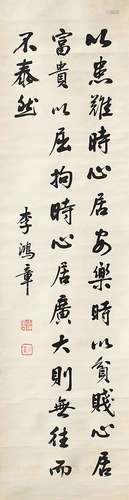 以患難時心居安樂時以貧賤心居
富貴以屈拘時心居廣大則無往而
不泰然
李鴻章